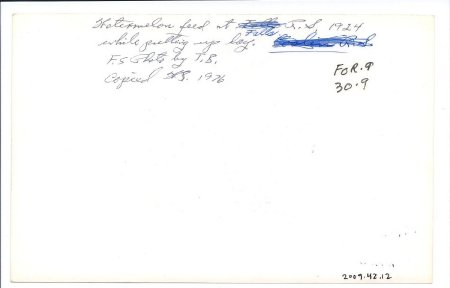 Watermelon feed at Falls R.S 1924
while putting up hay.
F.S Photo by T.B.
Copied 1976
FOR.9
30.9
2009.42.12